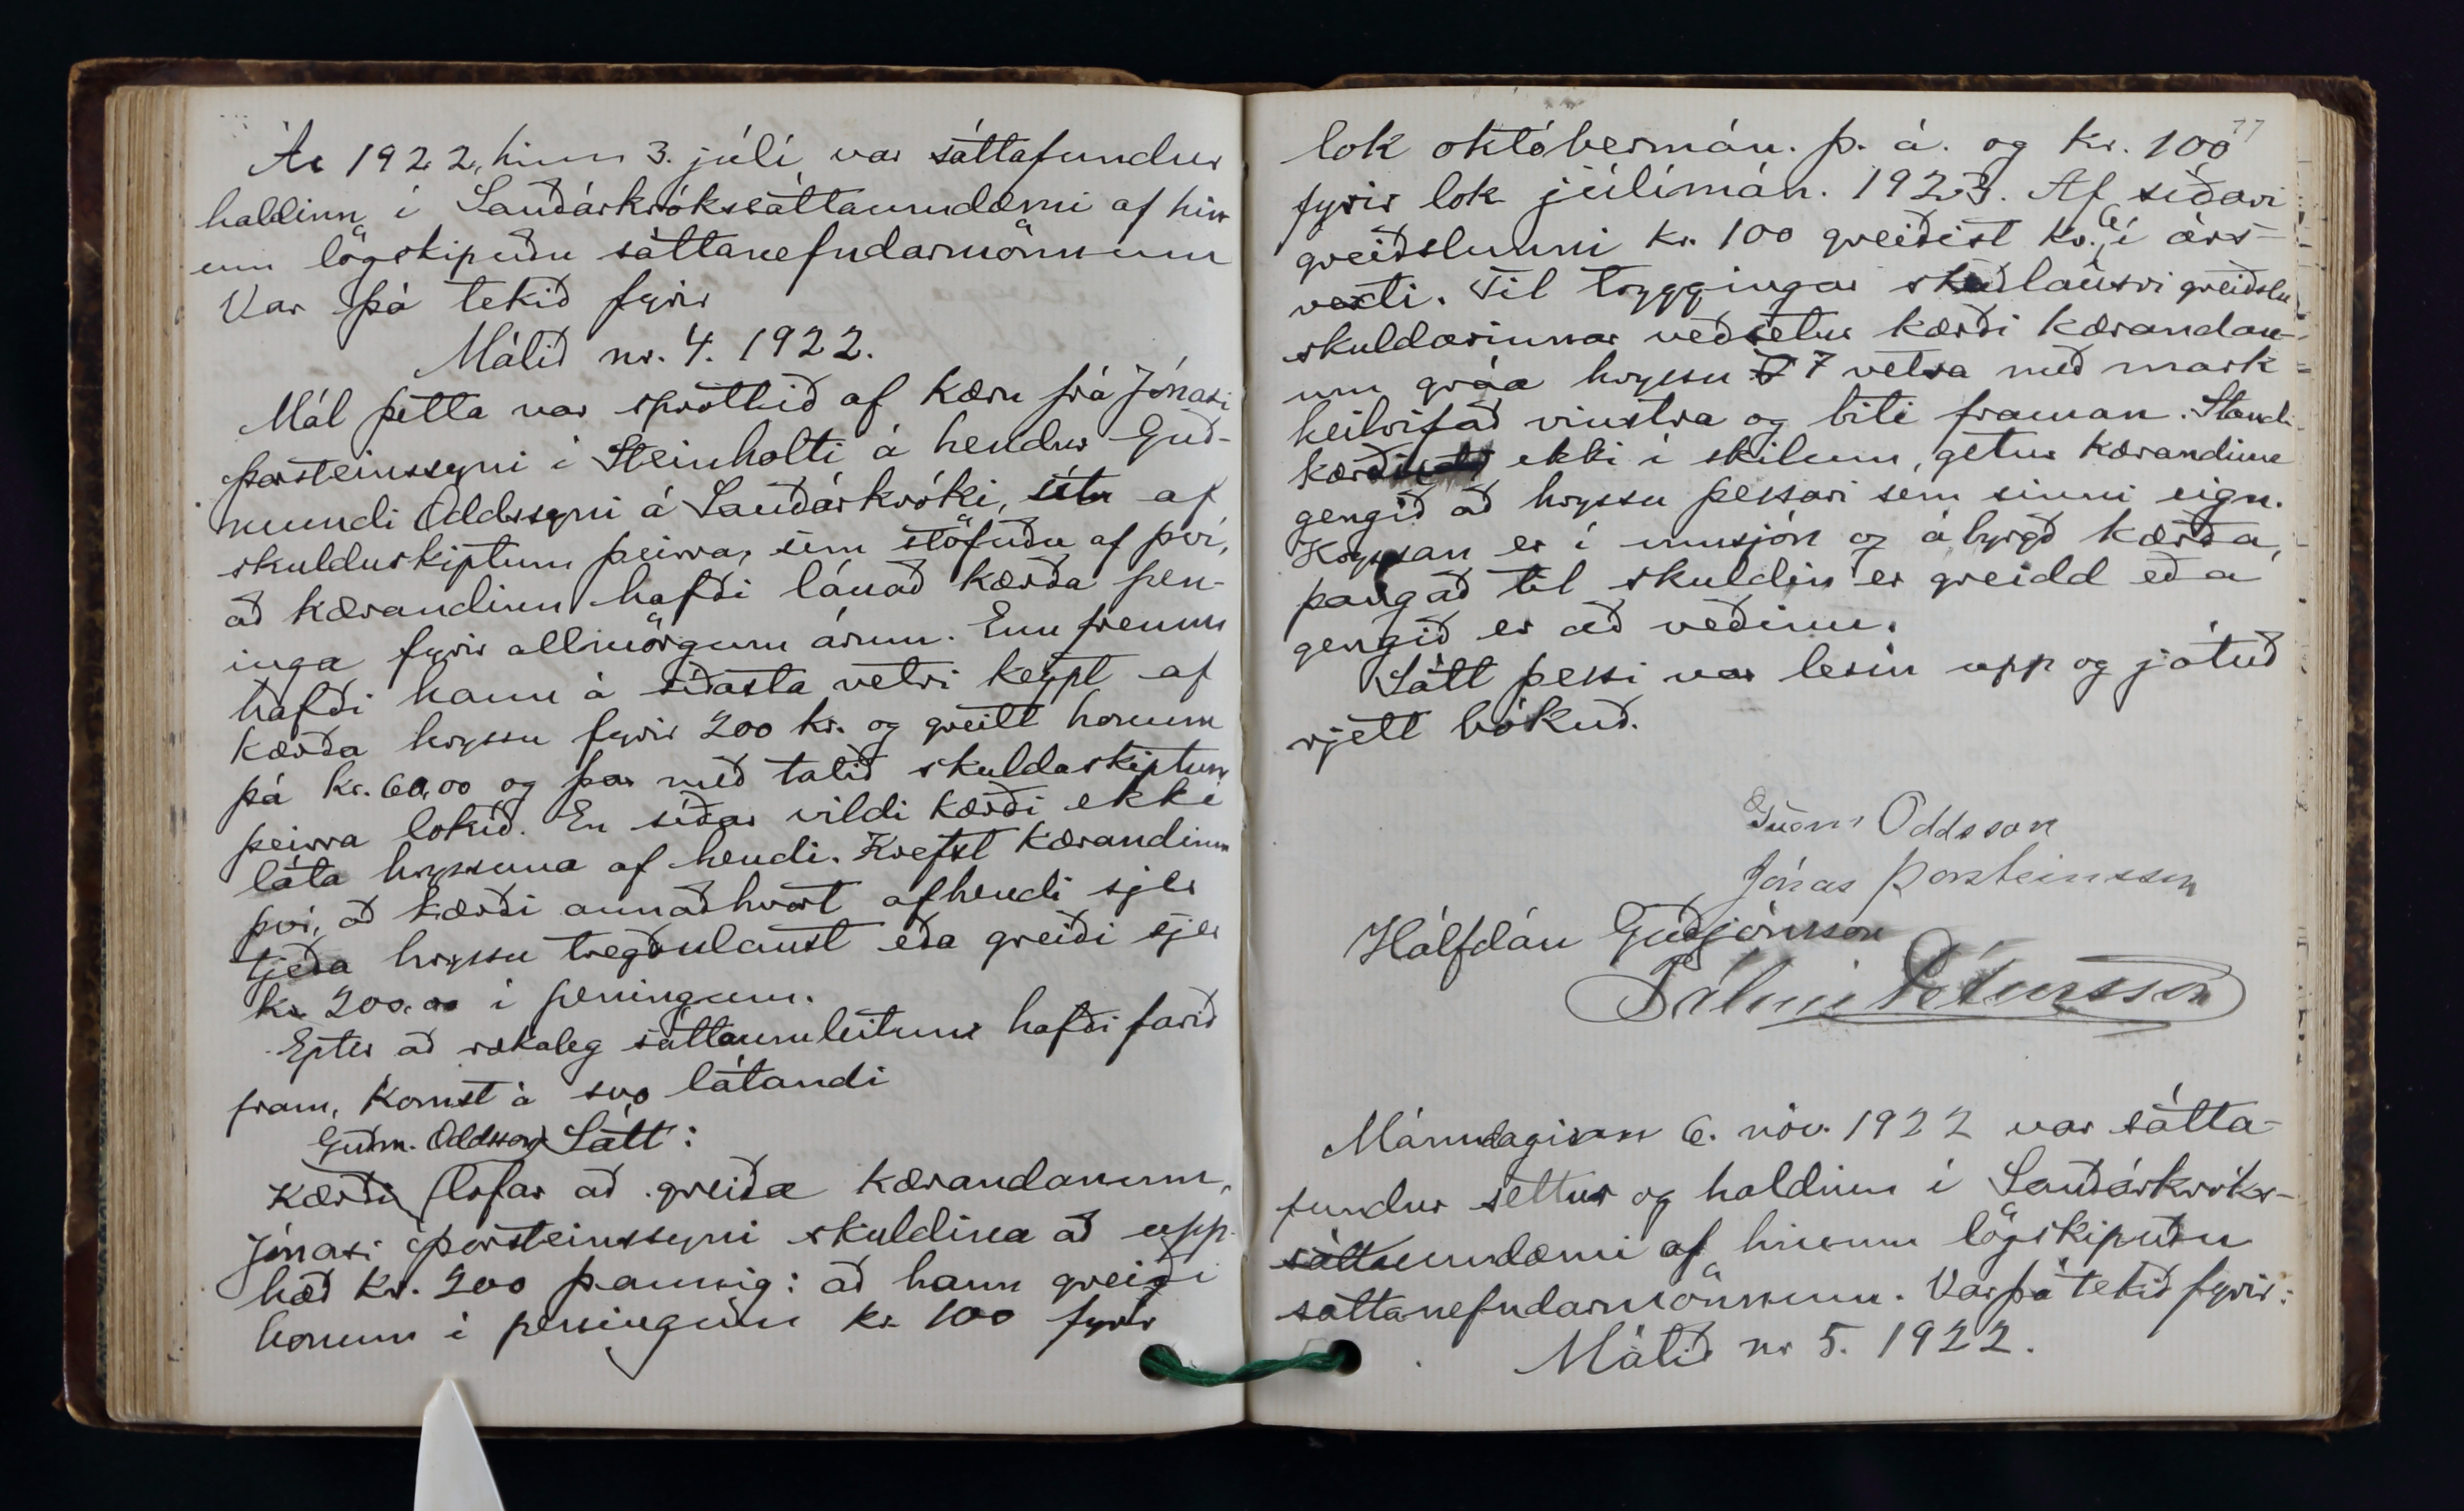 Ár 1922, hinn 3. júlí var sáttafundur
haldinn í Sauðárkrókssáttaumdæmi af hin-
um lögskipuðu sáttanefndarmönnum
Var þá tekið fyrir
Málið nr. 4. 1922.
Mál þetta var sprottið af kæru frá Jónasi
Þorsteinssyni í Steinholti á hendur Guð-
mundi Oddssyni á Sauðárkróki, út af
skulduskiptum þeirra, sem stöfuðu af því,
að kærandinn hafði lánað kærða pen-
inga fyrir allmörgum árum. Enn fremur
hafði hann á síðasta vetri keypt af
kærða hryssu fyrir 200 kr. og greitt honum
þá kr. 60,00 og þar með talið skuldaskiptum
þeirra lokið. En síðar vildi kærði ekki
láta hryssuna af hendi. Krefst kærandinn
því, að kærði annaðhvort afhendi sjer
tjeða hryssu tregðulaust eða greiði sjer
kr. 200.00 í peningum.
Eptir að rækileg sáttaumleitun hafði farið
fram, komst á svo látandi
Sátt:
Guðm. Oddsson
Kærði lofar að greiða kærandanum,
Jónasi Þorsteinssyni skuldina að upp-
hæð kr. 200 þannig: að hann greiði
honum í peningum kr. 100 fyrir
77
lok októbermán. þ. á. og kr. 100
fyrir lok júlímán. 1923. Af síðari
greiðslunni kr. 100 greiðist kr. 6 í árs-
vexti. Til tryggingar skaðlausri greiðslu
skuldarinnar veðsetur kærði kærandan-
um gráa hryssu 7 vetra með mark
heilrifað vinstra og biti framan. Standi
kærði ekki í skilum, getur kærandinn
gengið að hryssu þessari sem sinni eign.
Hryssan er í umsjón og ábyrgð kærða,
þangað til skuldin er greidd eða
gengið er að veðinu.
Sátt þessi var lesin upp og játuð
rjett bókuð.
Guðm Oddsson
Jónas Þorsteinsson
Hálfdán Guðjónsson
Pálmi Pétursson
Mánudaginn 6. nóv. 1922 var sátta-
fundur settur og haldinn í Sauðárkróks-
sáttaumdæmi af hinum lögskipuðu
sáttanefndarmönnum. Var þá tekið fyrir:
Málið nr 5. 1922.